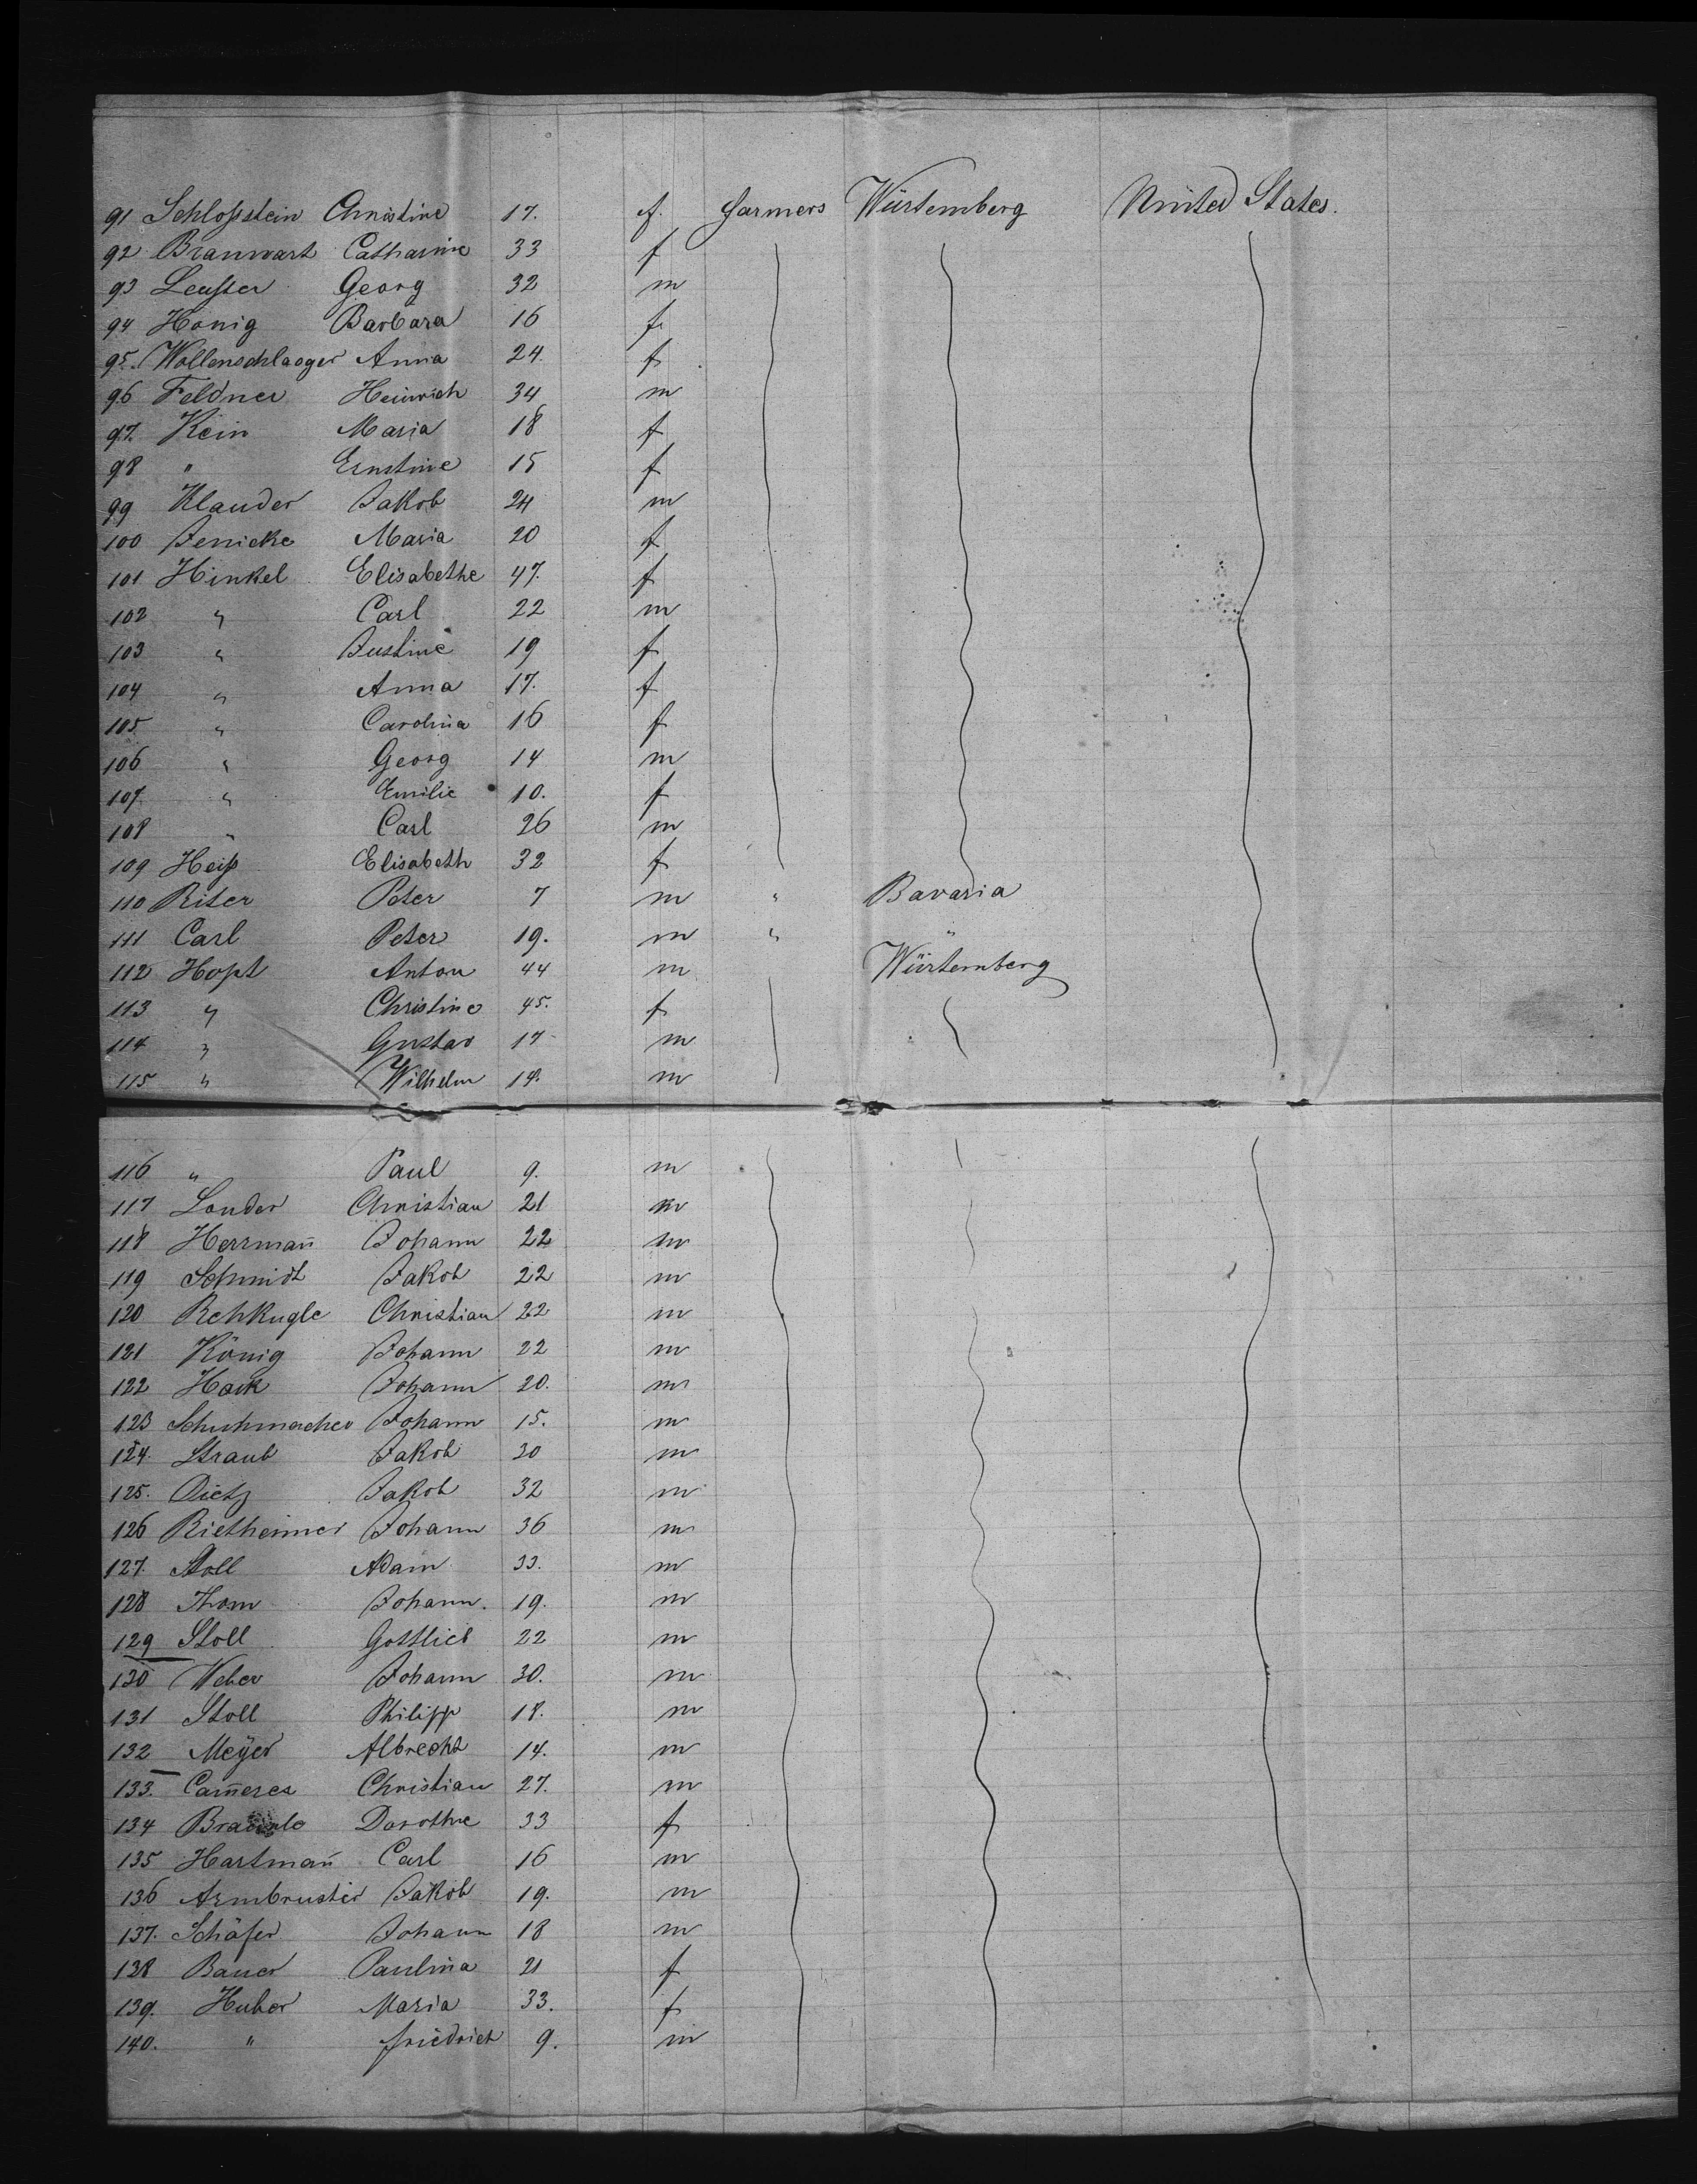 91 Schloßstein Christine 17. f. farmers Würtemberg United States.
92 Branwart Catharine 33 f
93 Leuster Georg 32 m
94 Honig Barbara 16 f.
95. Wollenschlaeger Anna 24 f
96 Feldner Heinrich 34 m
97. Kein Maria 18 f
98 " Ernstine 15 f
99 Klauder Jakob 24 m
100 Jenicke Maria 20 f
101 Hinkel Elisabethe 47. f
102 " Carl 22 m
103 " Justine 19 f
104 " Anna 17. f
105 " Carolina 16 f
106 " Georg 14 m
107. " Emilie 10. f
108 " Carl 26 m
109 Heiß Elisabeth 32 f
110 Riter Peter 7 m " Bavaria
111 Carl Peter 19. m " "
112 Hopt Anton 44 m Würtemberg
113 " Christine 45. f
114 " Gustav 17 m
115 " Wilhelm 14. m
116 " Paul 9. m
117 Louder Christian 21 m
118 Herrmañ Johann 22 m
119 Schmidt Jakob 22 m
120 Rehkugle Christian 22 m
121 König Johann 22 m
122 Hack Johann 20. m
123 Schuhmacher Johann 15. m
124. Straub Jakob 30 m
125. Dietz Jakob 32 m
126 Rietheimer Johann 36 m
127. Stoll Adam 33. m
128 Thom Johann. 19. m
129 Stoll Gottlieb 22 m
130 Weber Johann 30. m
131 Stoll Philipp 18. m
132 Meÿer Albrecht 14. m
133. Cam̃erer Christian 27. m
134 Dorothe 33 f
135 Hartmañ Carl 16 m
136 Armbruster Jakob 19. m
137. Schäfer Johann 18 m
138 Bauer Paulina 21 f
139. Huber Maria 33. f
140. " friedrich 9. m